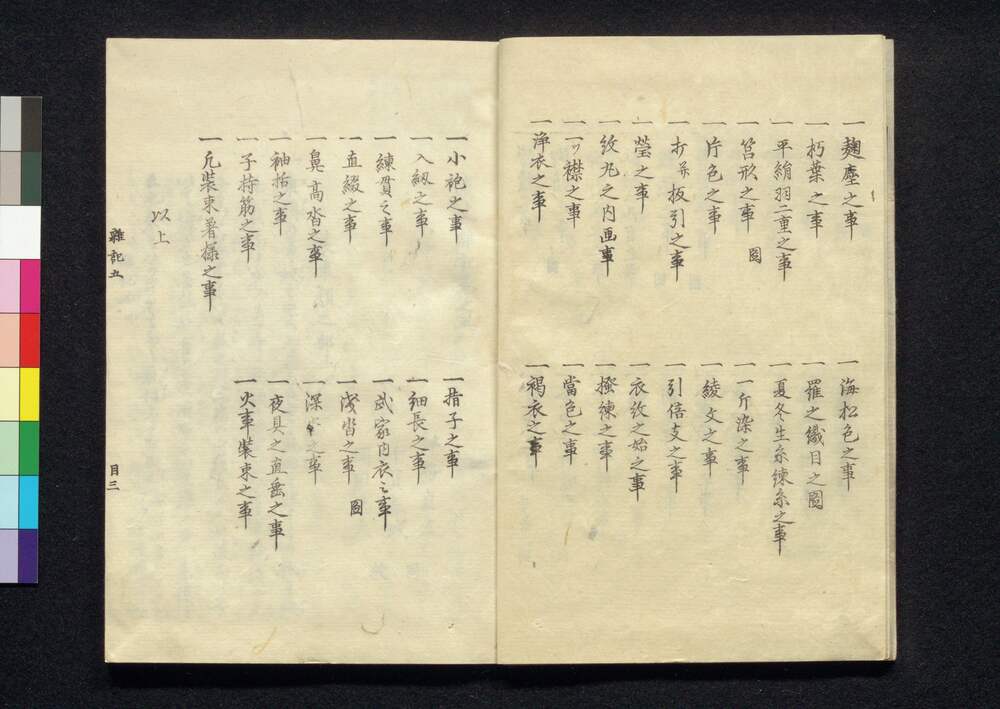 一麹塵之事
一朽葉之事
一平絹羽二重之事
一筥形之事 圖
一片色之事
一打并板引之事
一瑩之事
一紋丸之内画事
一一ツ襟之事
一浄衣之事
一海松色之事
一羅之織目之圖
一夏冬生糸練糸之事
一一斤染之事
一綾文之事
一引倍支之事
一衣紋之始之事
一掻練之事
一當色之事
一褐衣之事
一小袍之事
一入紐之事
一練貫之事
一直綴之事
一鼻高沓之事
一袖括之事
一子持筋之事
一凡装束著様之事
以上
一指子之事
一細長之事
一武家内衣之事
一浅沓之事 圖
一深沓之事
一夜具之直垂之事
一火事装束之事
雜記五
目三